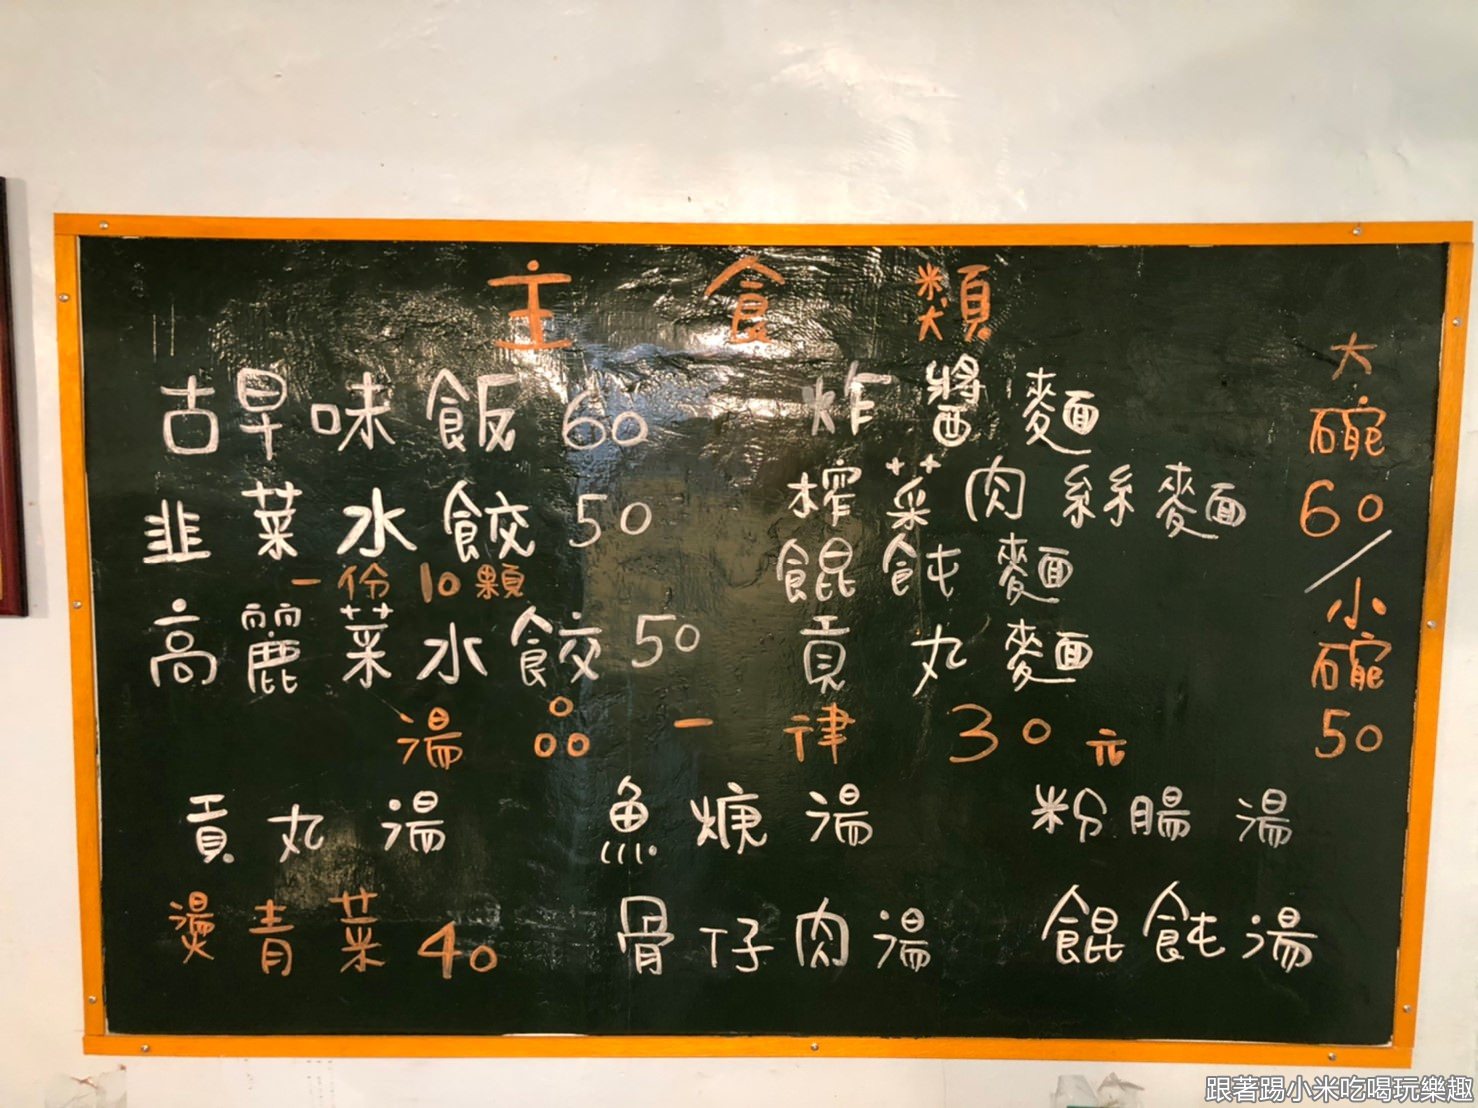 主食類
古早味飯 60
韭菜水餃 50
一份10顆
高麗菜水餃 50
炸醬麵
榨菜肉絲麵
餛飩麵
貢丸麵
大
碗
60
/
小
碗
50
湯 一律 30元
貢丸湯
魚焿湯
粉腸湯
燙青菜 40
骨仔肉湯
餛飩湯
跟著踢小米吃喝玩樂趣